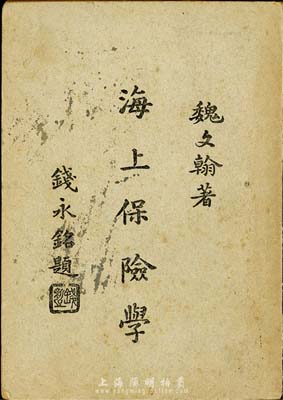 魏文翰著
海上保險學
錢永銘題
上海陽明拍賣